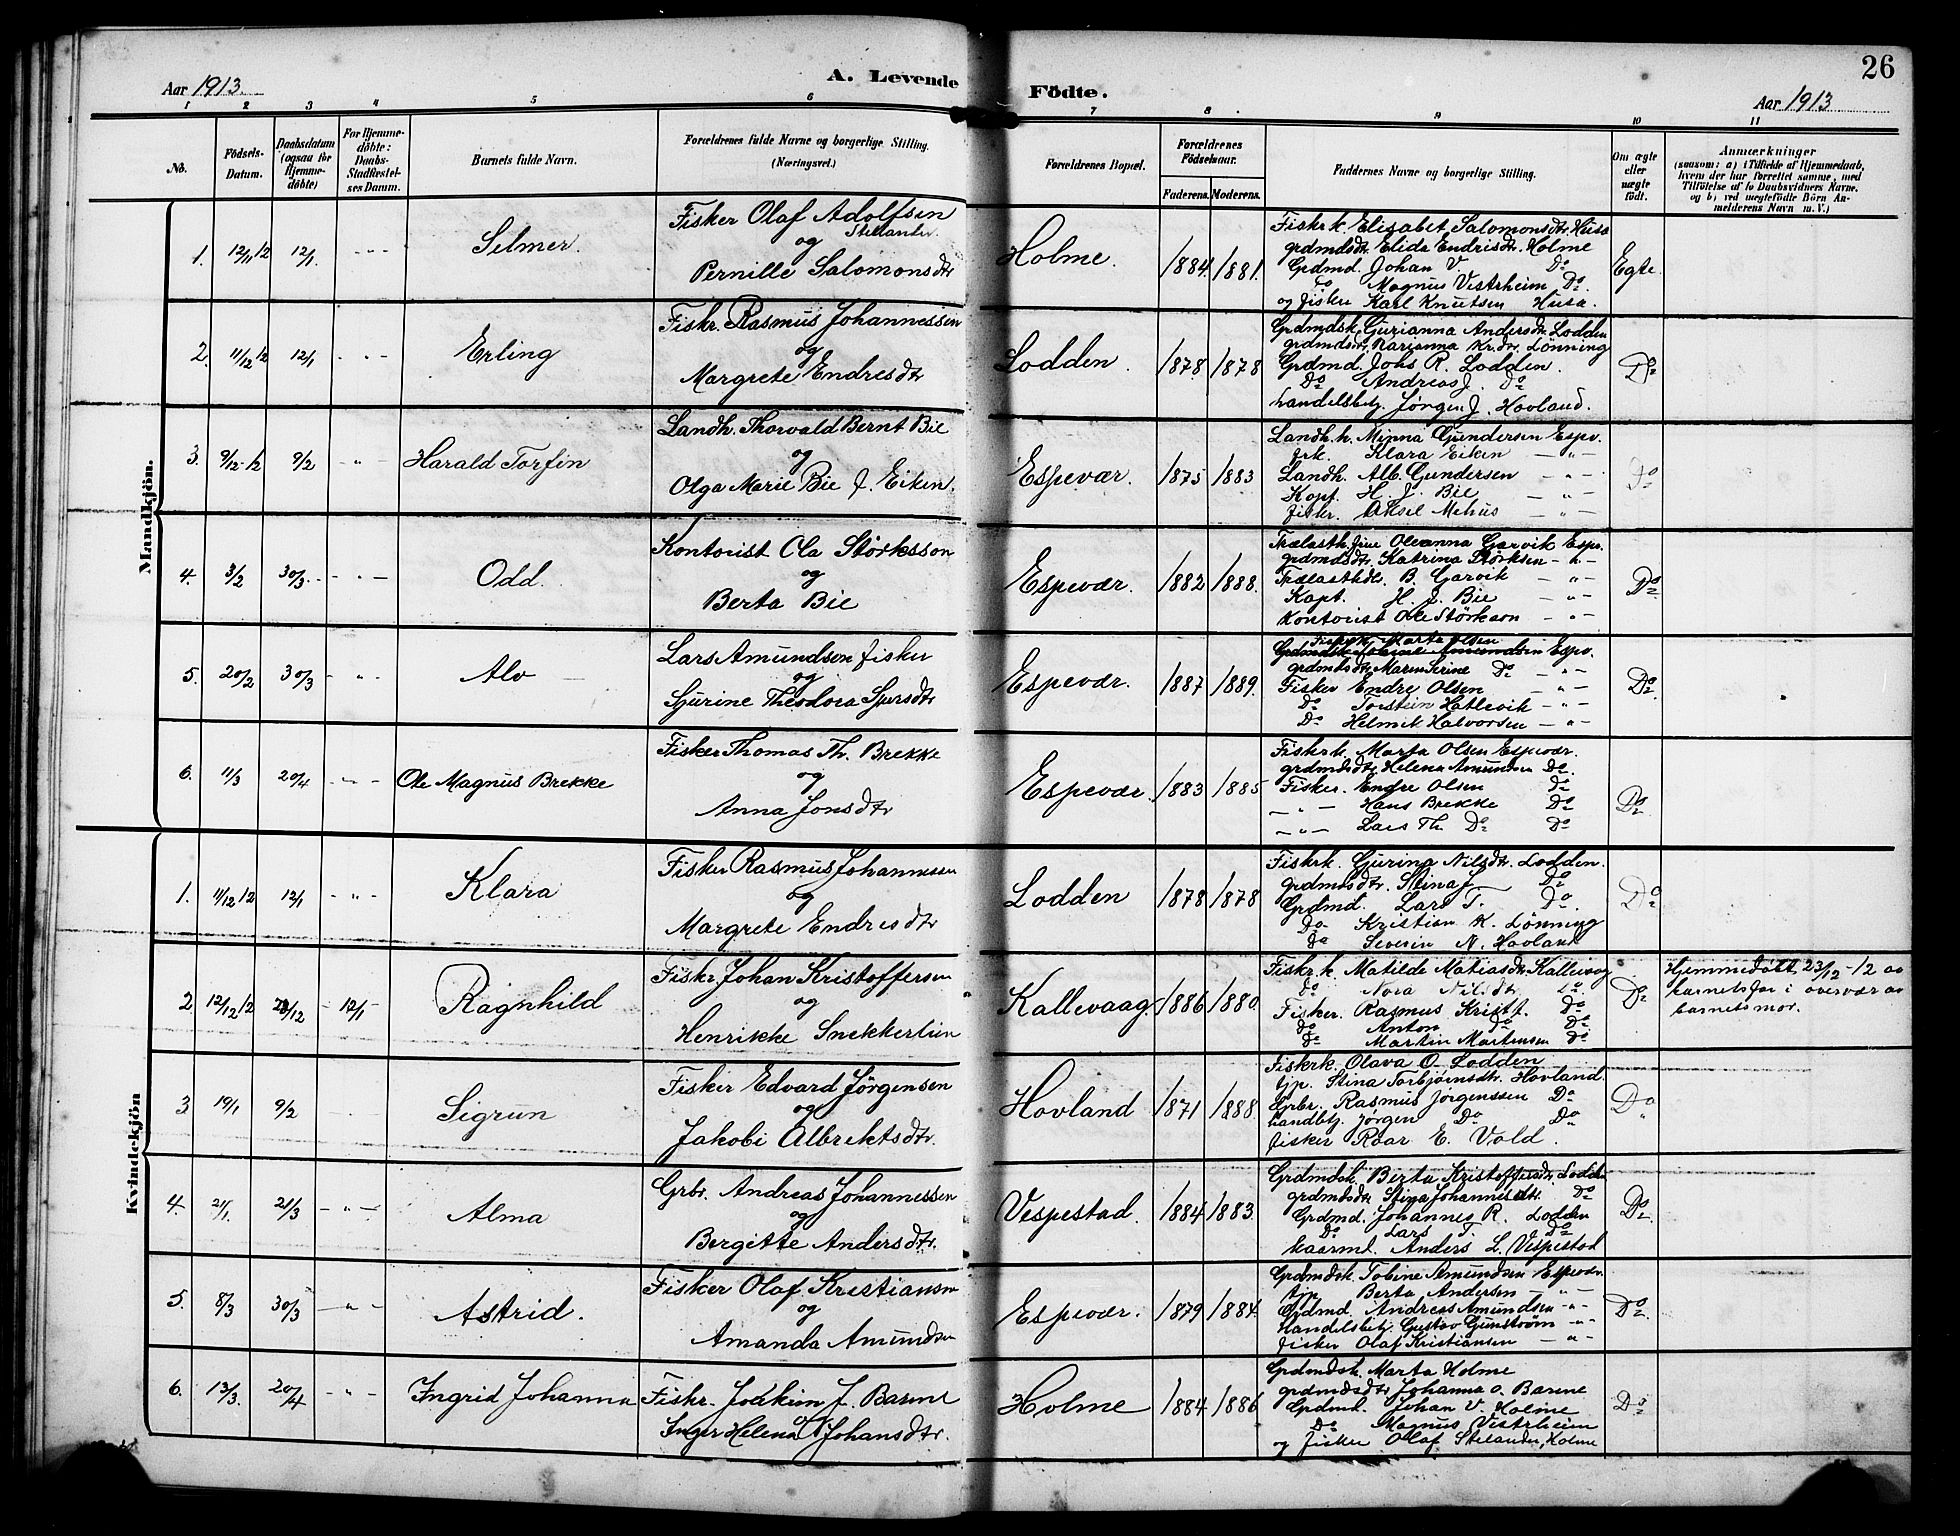 26
Aar 1913.
A. Levende
Födte.
Aar 1913
1 2 3 4 5 6 7 8 9 10 11
No.
Födsels-Datum.
Daabsdatum (ogsaa for Hjemme-döbte)
For Hjemme-döbte: Daabs-Stadfæstel-ses Datum.
Barnets fulde Navn.
Forældrenes fulde Navne og borgerlige Stilling.
(Næringsvei.)
Forældrenes Bopæl.
Forældrenes Födselsaar.
Faderens. Moderens.
Faddernes Navne og borgerlige Stilling.
Om ægte eller uægte födt.
Anmærkninger
(saasom: a) i Tilfælde af Hjemmedaab,
hvem der har forrettet samme, med
Tilföielse af to Daabsvidners Navne,
og b) ved uægtefödte Börn An-
melderens Navn m. V.)
Mandkjön.
1. 12/11 12 12/1. - " - Selmer.
Fisker Olaf Adolfsen
Stelander
og
Pernille Salomonsdtr
Holme. 1884 1881.
Fiskrk. Elisabet Salomonsdtr. Husa
grdmdsdtr. Elida Endrisdtr. Holme
Grdmd. Johan V. Do
Do Magnus Vestrheim Do.
og fisker Karl Knutsen Husa.
Egte.
2. 11/12 12 12/1 - " - Erling
Fiskr. Rasmus Johannessen
og
Margrete Endresdtr
Lodden. 1878 1878
Grdmdsk. Gurianna Andersdtr. Lodden
grdmdsdtr. Marianna Kr.dtr. Lönning
Grdmd. Johs R. Lodden.
Do Andreas J. Do
handelsbetj. Jørgen J. Hovland.
Do
3. 9/12-12 9/2 - " - Harald Torfin
Landh. Thorvald Bernt Bie
og
Olga Marie Bie f. Eiken.
Espevær. 1875 1883
Landh. h. Minna Gundersen Espv.
frk. Klara Eiken - " -
Landh. Alb. Gundersen - " -
Kapt. H. J. Bie - " -
fisker. Aksel Mehus - " -
Do
4. 3/2 30/3. - " - Odd.
Kontorist Ola Störksson
og
Berta Bie
Espevær. 1882 1888.
Trælasth. frue Oleanna Garvik Espv.
grdmdsdtr. Katrina Störksen - " -
Trælasthdl. B. Garvik - " -
Kapt. H. J. Bie - " -
Kontorist Ole Störkson - " -
Do
5. 20/2 30/3 - " - Alv
Lars Amundsen fisker
og
Sjurine Theodora Sjursdtr
Espevær. 1887 1889.
Fiskrk. Marta Olsen
Espv.
grdmdsdtr. Maren Serine Do - " -
Fisker Endre Olsen - " -
Do Torstein Hatlevik - " -
Do Helmik Halvorsen - " -
Do.
6. 11/3 20/4 - " - Ole Magnus Brekke
Fisker Thomas Th. Brekke
og
Anna Jonsdtr
Espevær. 1883 1885
Fiskrk. Marta Olsen Espevær.
grdmdsdtr. Helena Amundsen Do.
Fisker. Endre Olsen Do
- " - Hans Brekke Do
- " - Lars Th. Do Do
Do.
Kvindekjön
1. 11/12 12 12/1 - " - Klara
Fisker Rasmus Johannessen
og
Margrete Endresdtr
Lodden 1878 1878
Fiskrk. Gurina Nilsdtr. Lodden.
grdmdsdtr. Stina J. Do
Grdmd. Lars T. Do.
Do Kristian K. Lönning
Do Severin N. Hovland
Do
2 12/12 12 23/12 - 12/1 Ragnhild
Fiskr. Johan Kristoffersen
og
Henrikke Snekkerlien
Kallevaag. 1886 1880.
Fiskr. k. Matilde Matiasdtr. Kallevaag
Do Nora Nilsdtr. Do
Fisker. Rasmus Kristf. Do
Do Anton Do Do
Do Martin Martensen Do
Do
Hjemmedöbt 23/12 -12 av
barnets far i overvær av
barnets mor.
3. 19/1 9/2 Sigrun
Fisker Edvard Jørgensen
og
Jakobi Albrektsdtr.
Hovland 1871 1888.
Fiskrk. Olava O. Lodden
tjp. Stina Torbjørnsdtr. Hovland.
Grbr. Rasmus Jörgenssen Do
handbetj. Jørgen Do Do
fisker Roar E. Vold.
Do
4. 2/1. 21/3 - " - Alma
Grbr. Andreas Johannessen
og
Bergitte Andersdtr.
Vespestad. 1884 1883.
Grdmdsk. Berta Kristoffersdtr. Lodden
grdmdsdtr. Stina Johannesdtr. Do
Grdmd. Johannes R. Lodden
Do Lars T. Do
kaarml. Anders L. Vespestad
Do.
5. 8/3 30/3 - " - Astrid.
Fisker Olaf Kristiansen
og
Amanda Amundsen
Espevær. 1879 1884.
Grdmdsk. Tobine Amundsen Espevær.
tjp. Berta Andersen - " -
Grdmd. Andreas Amundsen - " -
Handelsbetj. Gustav Gunström - " -
fisker Olaf Kristiansen - " -
Do
6. 13/3. 20/4 - " - Ingrid Johanna
Fiskr. Joakim J. Barane
Inger Helena Johansdtr.
Holme 1884 1886
Grdmdsk. Marta Holme
grdmdsdtr. Johanna O. Barane
Grdmd. Johan V. Holme
Do Magnus Vestrheim
og fisker Olaf Stelander, Holme
Do